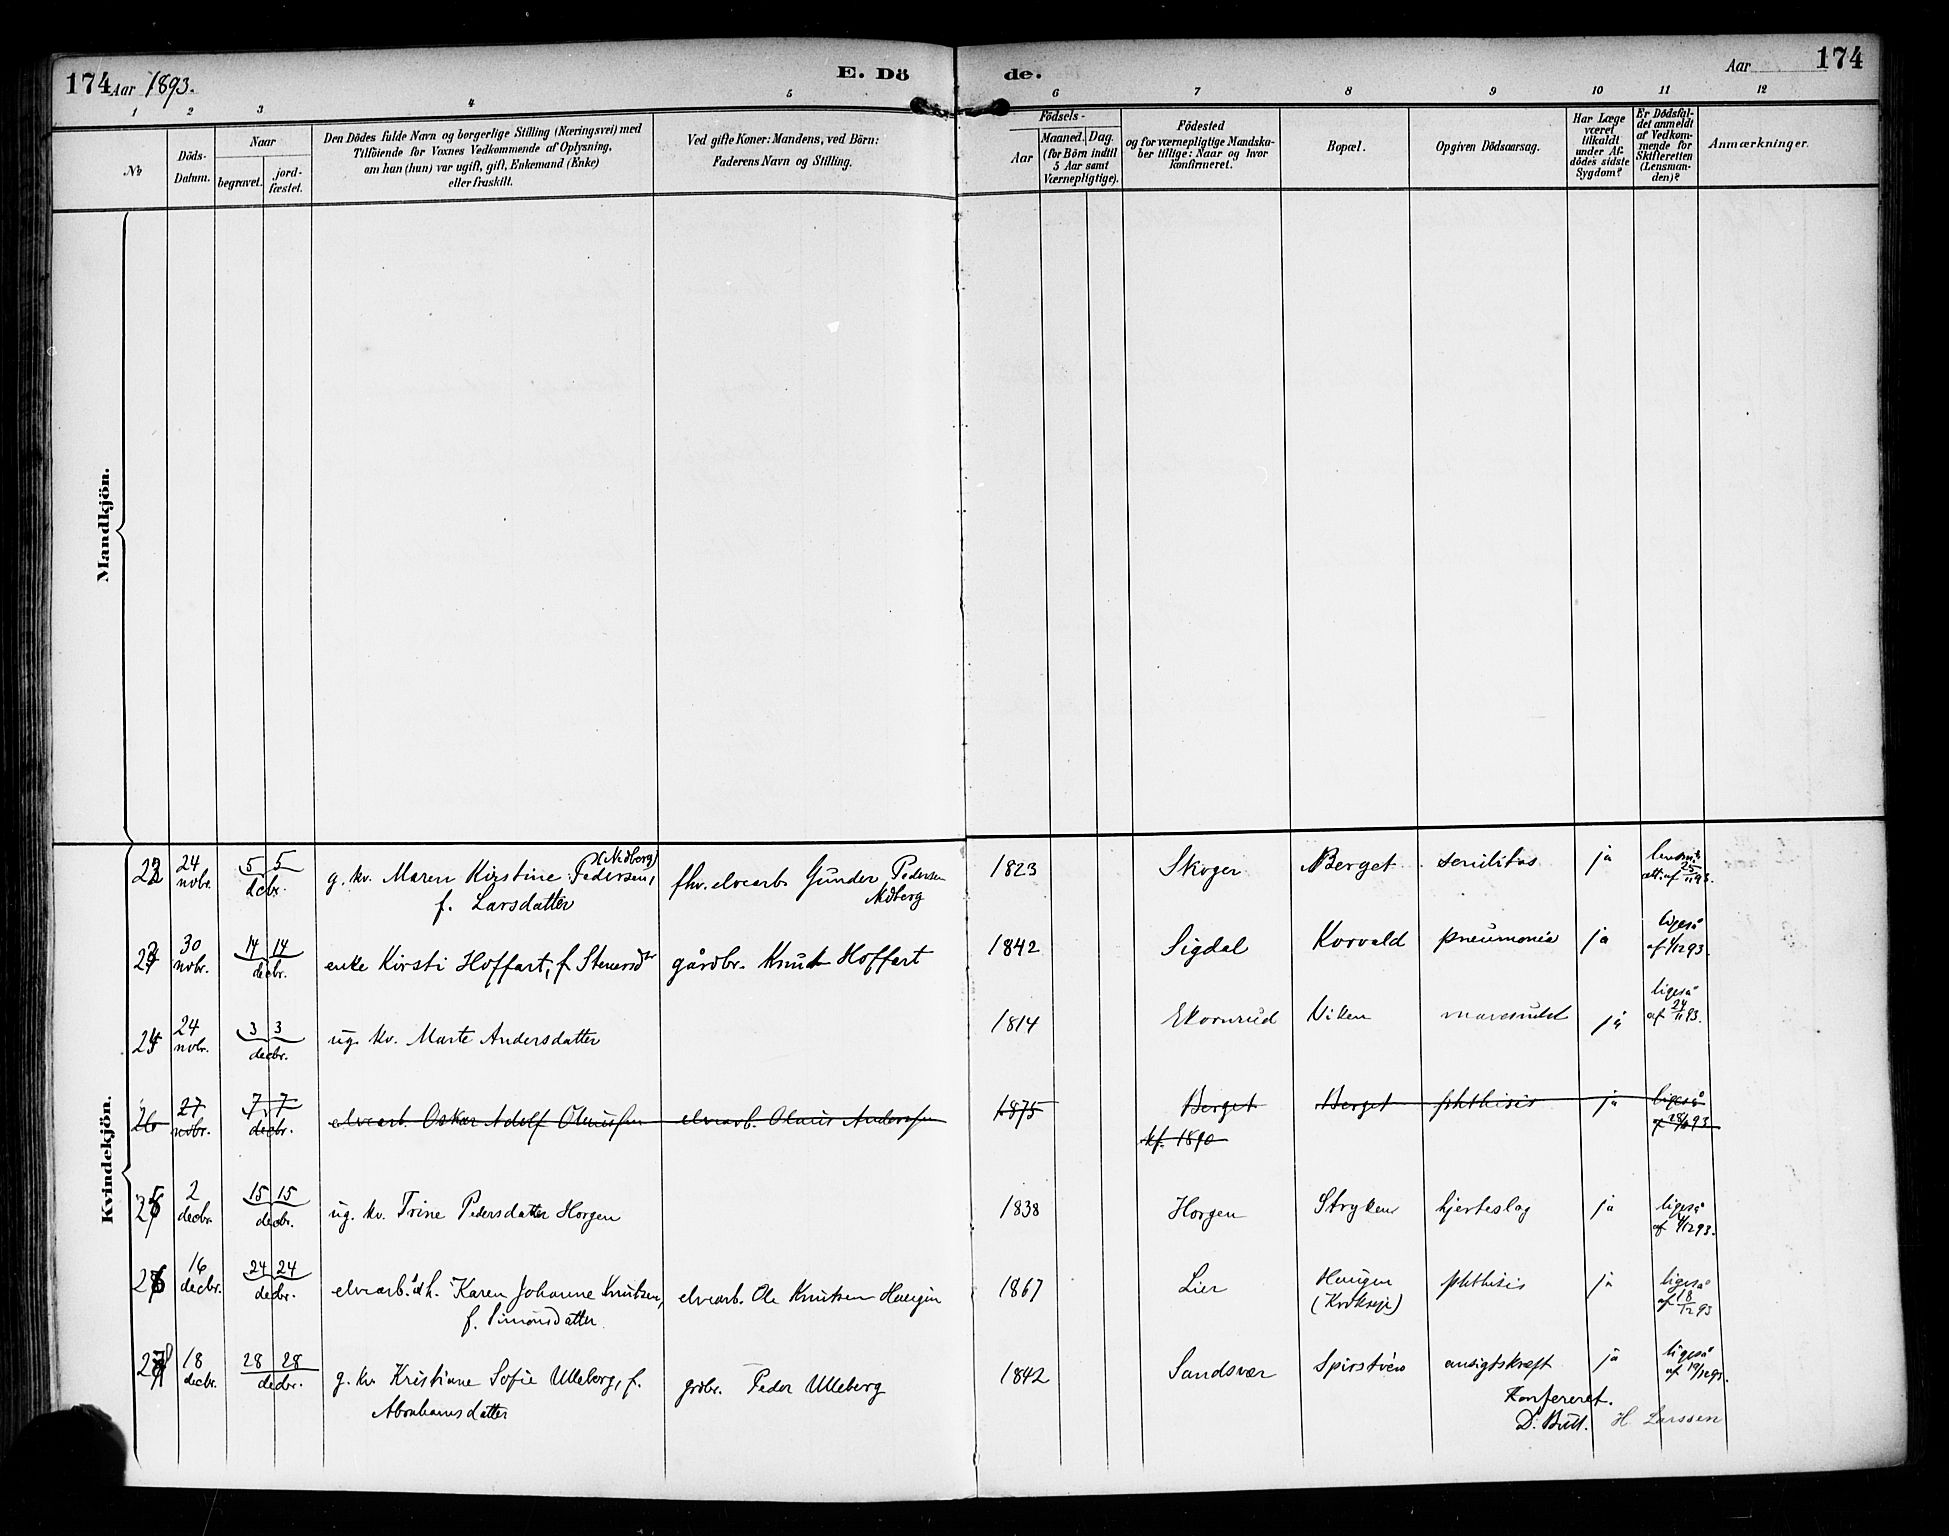 174 Aar 1893. E. Dö de. Aar 174
1 2 3 4 5 6 7 8 9 10 11 12
No
Döds-
Datum.
Naar
begravet. jord-
fæstet.
Den Dödes fulde Navn og borgerlige Stilling (Næringsvei) med
Tilföiende for Voxnes Vedkommende af Oplysning,
om han (hun) var ugift, gift, Enkemand (Enke)
eller fraskilt.
Ved gifte Koner: Mandens, ved Börn:
Faderens Navn og Stilling.
Födsels-
Aar
Maaned. Dag.
(for Börn indtil
5 Aar samt
Værnepligtige).
Födested
og for værnepligtige Mandska-
ber tillige: Naar og hvor
konfirmeret.
Bopæl.
Opgiven Dödsaarsag.
Har Læge
været
tilkaldt
under Af-
dödes sidste
Sygdom?
Er Dödsfal-
det anmeldt
af Vedkom-
mende for
Skifteretten
(Lensman-
den)?
Anmærkninger.
Mandkjön.
Kvindekjön.
24 novbr. 5 5 decbr. g. kv. Maren Kirstine Pedersen, (Ndberg)
f. Larsdatter
fhv. elvearb. Gunder Pedersen
Ndberg
1823 Skoger Berget senilitas ja
30 novbr. 14 14 decbr. enke Kirsti Hoffart, f. Stenersdtr gårdbr. Knut Hoffart 1842 Sigdal Korvald pneumonia ja ligeså
24 novbr. 3 3 decbr. ug. kv. Marte Andersdatter 1814 Ekornrud Viken ja ligeså
af 24/11 93.
26 27 novbr. 7 7 decbr. elvearb. Oskar Adolf Olaussen elvearb. Olaus Anderssen 1875 Berget
kf. 1890
Berget phthisis ja ligeså
2 decbr. 15 15 decbr. ug. kv. Trine Pedersdatter Horgen 1838 Horgen Stryken hjerteslag ja ligeså
af 4/12 93.
16 decbr. 24 24 decbr. elvearb. h. Karen Johanne Knutsen,
f. Simonsdatter
elvearb. Ole Knutsen Haugen 1867 Lier Haugen
(Krokseje)
phthisis ja ligeså
af 18/12 93
18 decbr. 28 28 decbr. g. kv. Kristiane Sofie Ulleberg, f.
Abrahamsdatter
grdbr. Peder Ulleberg 1842 Sandsvær ansigtskræft ja ligeså
af 19/12 93.
Konfereret.
D. Bull. H. Larssen